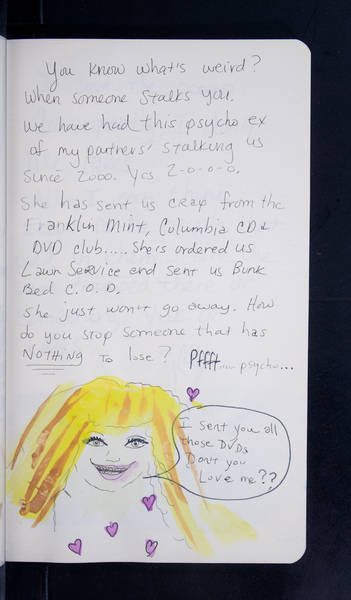 You know what's weird?
When someone stalks you.
We have had this psycho ex
of my partners' stalking us
since 2000. Yes 2-0-0-0.
She has sent us crap from the
Franklin Mint, Columbia CD &
DVD club..... She's ordered us
Lawn Service and sent us Bunk
Bed C.O.D.
She just won't go away. How
do you stop someone that has
NOTHING to lose? Pffft..... psycho...
I sent you all
those DVDs
Don't you
Love me??